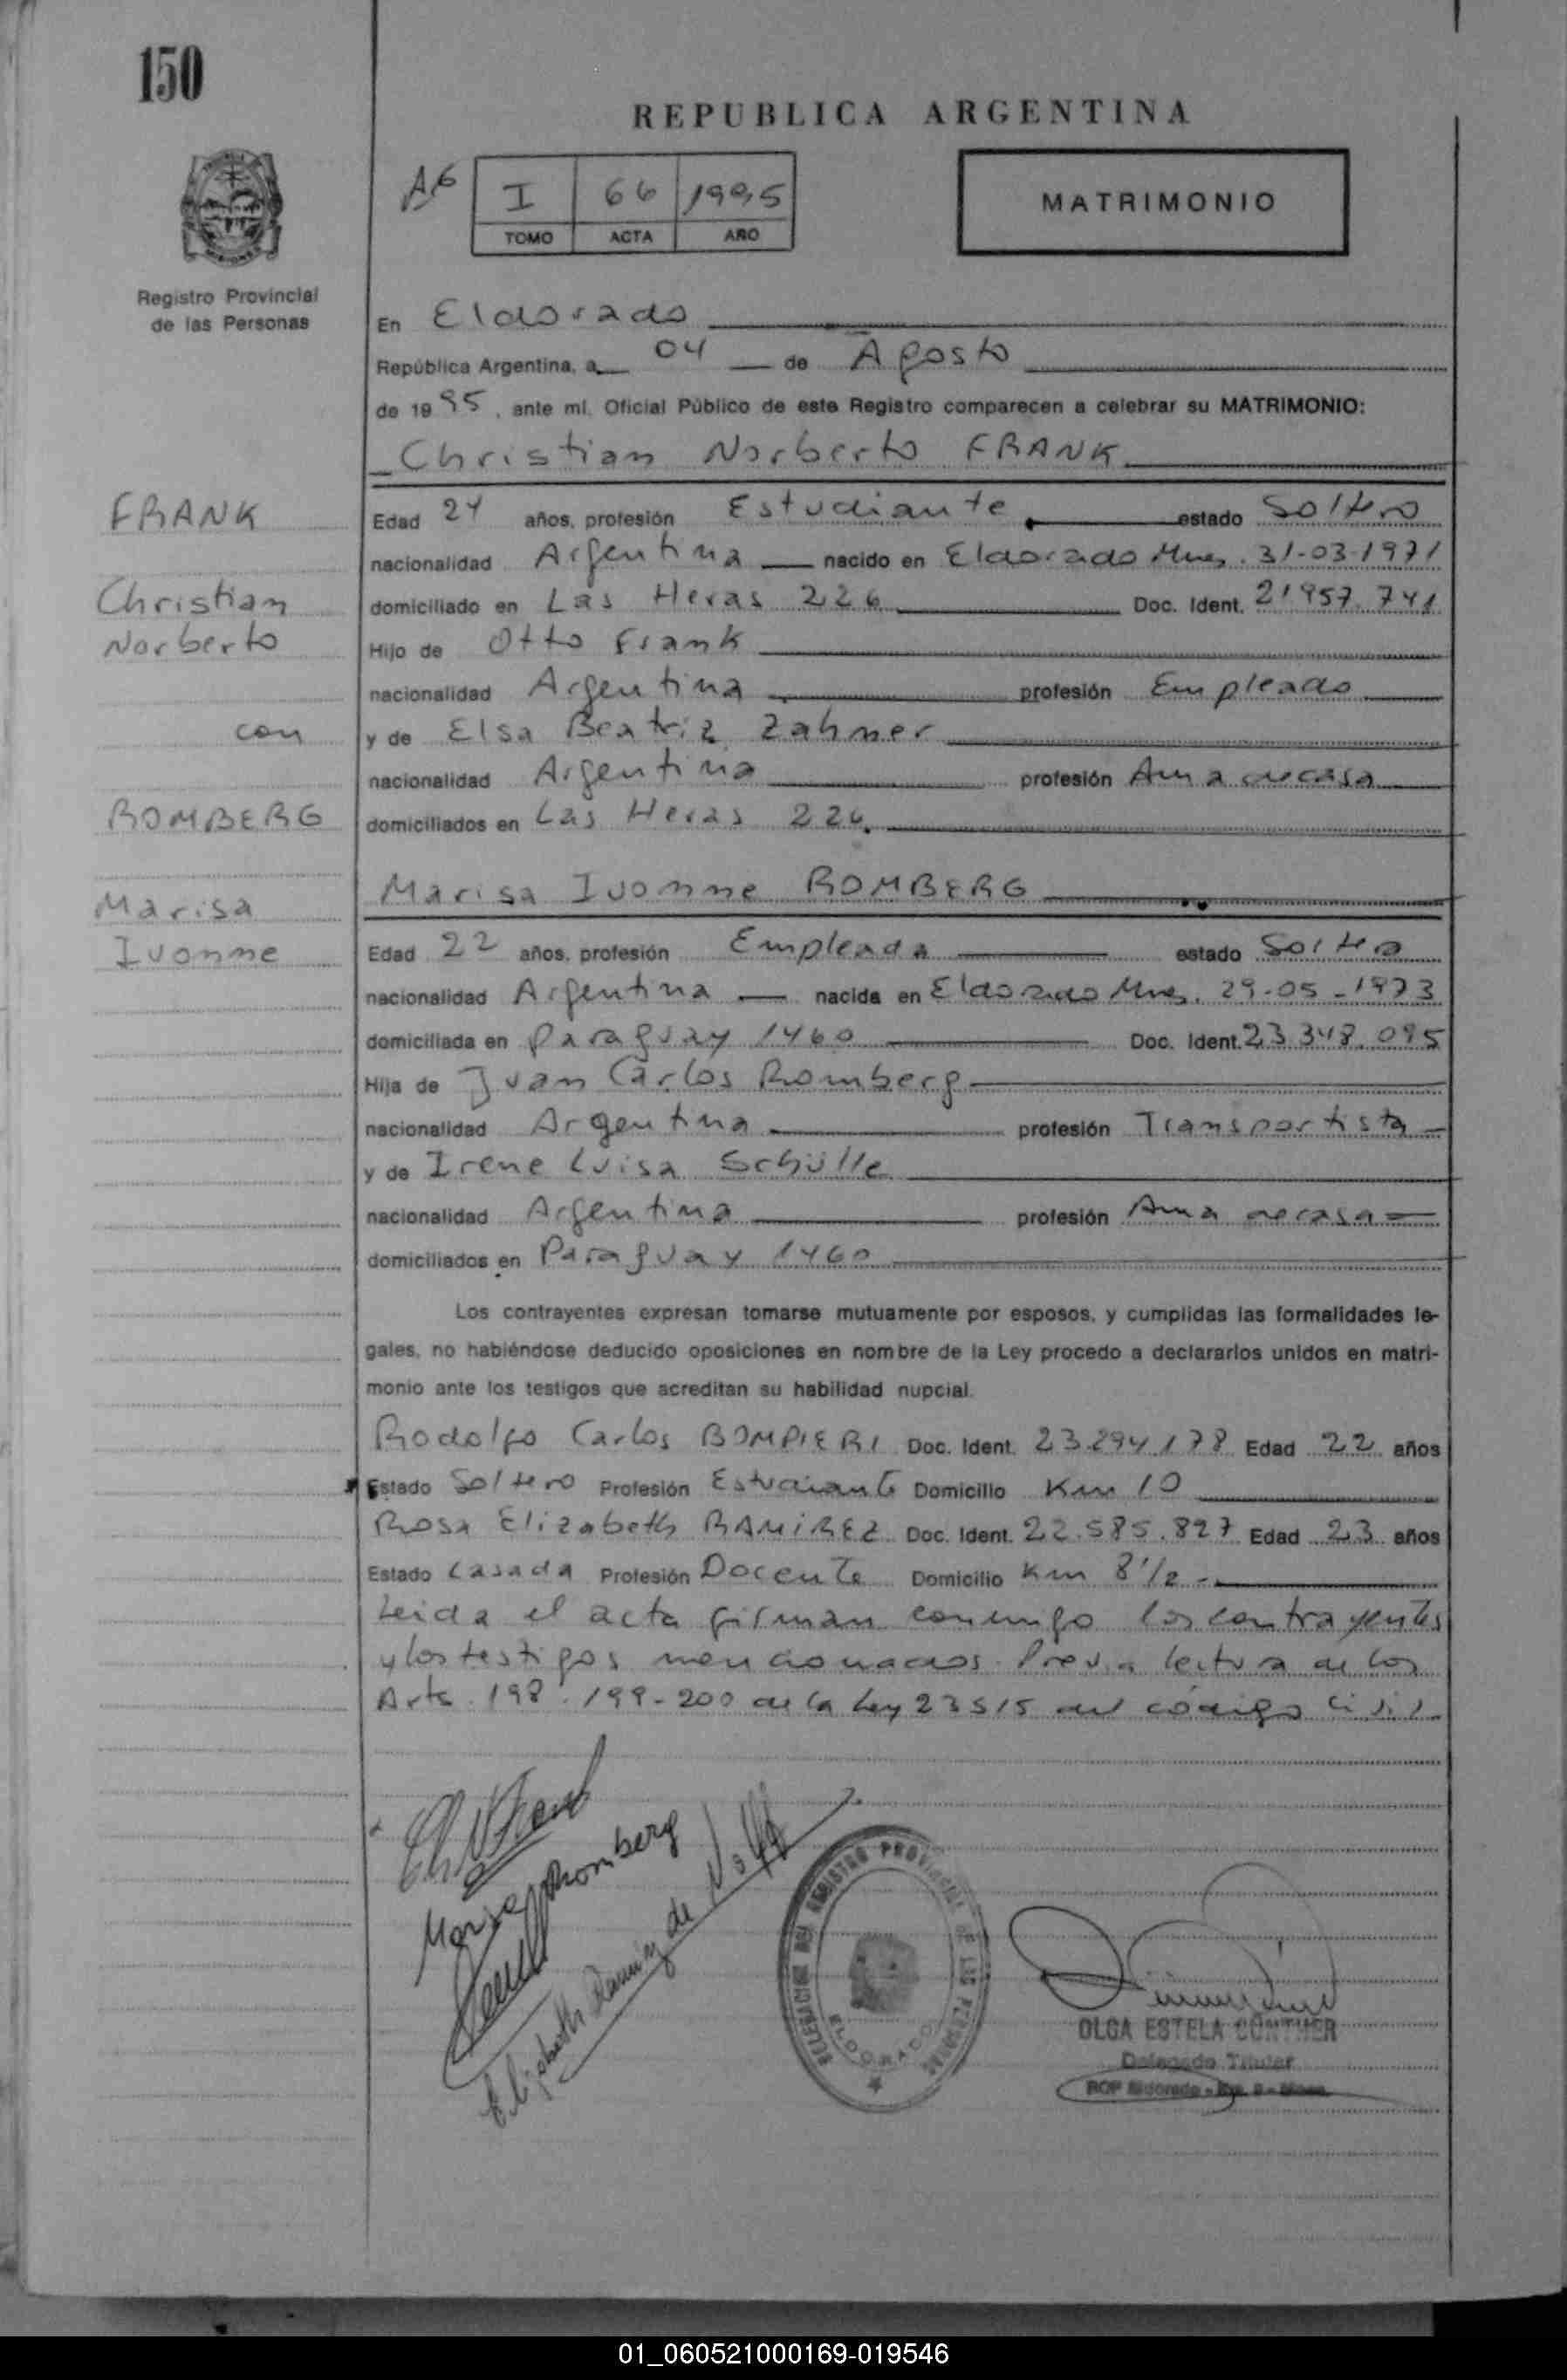 150
REPUBLICA ARGENTINA
I 66 1995
TOMO ACTA AÑO
MATRIMONIO
Registro Provincial
de las Personas
En Eldorado
República Argentina, a 04 de Agosto
de 1995, ante mí, Oficial Público de este Registro comparecen a celebrar su MATRIMONIO:
Christian Norberto FRANK
FRANK
Edad 24 años, profesión Estudiante estado Soltero
nacionalidad Argentina nacido en Eldorado Mnes. 31-03-1971
Christian
domiciliado en Las Heras 226 Doc. Ident. 21957.741
Norberto
Hijo de Otto Frank
nacionalidad Argentina profesión Empleado
con
y de Elsa Beatriz Zahner
nacionalidad Argentina profesión Ama de casa
ROMBERG
domiciliados en Las Heras 226.
Marisa Ivonne ROMBERG
Marisa
Ivonne
Edad 22 años, profesión Empleada estado Soltera
nacionalidad Argentina nacida en Eldorado Mnes. 29-05-1973
domiciliada en Paraguay 1460 Doc. Ident. 23.348.095
Hija de Juan Carlos Romberg
nacionalidad Argentina profesión Transportista
y de Irene Luisa Schülle
nacionalidad Argentina profesión Ama de casa
domiciliados en Paraguay 1460
Los contrayentes expresan tomarse mutuamente por esposos, y cumplidas las formalidades le-
gales, no habiéndose deducido oposiciones en nombre de la Ley procedo a declararlos unidos en matri-
monio ante los testigos que acreditan su habilidad nupcial.
Rodolfo Carlos BOMPIERI Doc. Ident. 23.294.178 Edad 22 años
Estado Soltero Profesión Estudiante Domicilio Km 10
Rosa Elizabeth RAMIREZ Doc. Ident. 22.585.827 Edad 23 años
Estado Casada Profesión Docente Domicilio Km 8 1/2
Leida el acta firman conmigo los contrayentes
y los testigos mencionados. Previa lectura de los
Arts. 198-199-200 de la Ley 23515 del código civil
Marisa Romberg
Elizabeth Ramirez de
DELEGACION DEL REGISTRO PROVINCIAL DE LAS PERSONAS
ELDORADO
OLGA ESTELA GÜNTHER
Delegado Titular
01_060521000169-019546